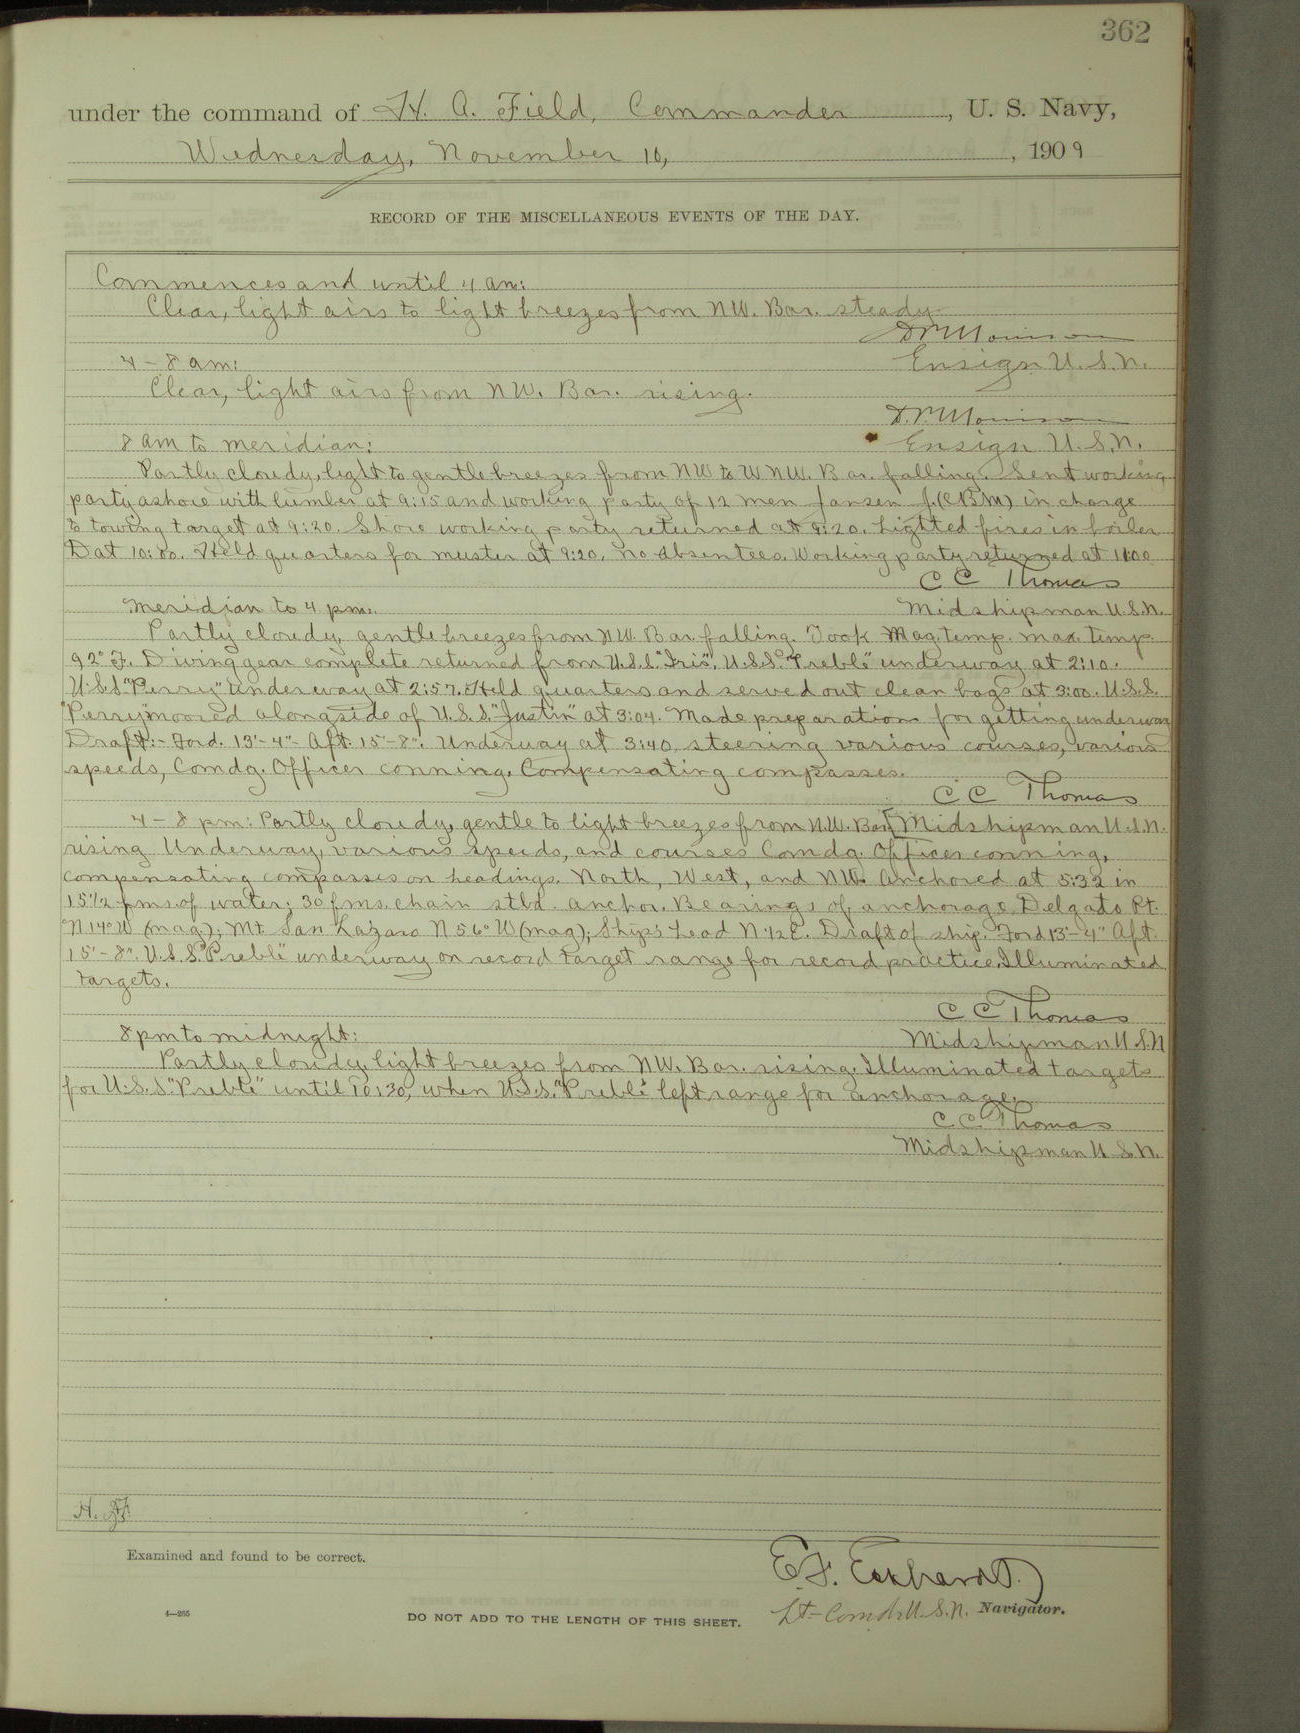 362
under the command of H. A. Field, Commander, U. S. Navy,
Wednesday, November 10, 1909
RECORD OF THE MISCELLANEOUS EVENTS OF THE DAY.
Commences and until 4 am:
Clear, light airs to light breezes from NW. Bar. steady.
4 - 8 am:
Ensign U. S. N.
Clear, light airs from NW. Bar. rising.
8 am to meridian:
Ensign U. S. N.
Partly cloudy, light to gentle breezes from NW to WNW. Bar. falling. Sent working
party ashore with lumber at 9:15 and working party of 12 men Jansen J. (CBM) in charge
to towing target at 9:20. Shore working party returned at 9:20. Lighted fires in boiler
D at 10:00. Held quarters for muster at 9:20, no absentees. Working party returned at 11:00
C C Thomas
Meridian to 4 pm:
Midshipman U.S.N.
Partly cloudy, gentle breezes from NW. Bar falling. Took Mag. temp. max. temp.
92° F. Diving gear complete returned from U.S.S. "Iris". U.S.S. "Preble" underway at 2:10.
U.S.S. "Perry" underway at 2:57. Held quarters and served out clean bags at 3:00. U.S.S.
"Perry" moored alongside of U.S.S. "Justin" at 3:04. Made preparations for getting underway
Draft:- Ford. 13'-4" Aft. 15'-8". Underway at 3:40, steering various courses, various
speeds, Comdg. Officer conning. Compensating compasses.
C C Thomas
4 - 8 pm: Partly cloudy, gentle to light breezes from N.W. Bar. [Midshipman U.S.N.
rising. Underway, various speeds, and courses Comdg. Officer conning,
compensating compasses on headings North, West, and NW. Anchored at 5:32 in
15 1/2 fms of water; 30 fms. chain stbd. anchor. Bearings of anchorage Delgado Pt.
N 14° W (mag); Mt. San Lazaro N 56° W (mag); Ship's head N 12 E. Draft of ship. Ford 13'-4" Aft.
15'-8". U.S.S. "Preble" underway on record target range for record practice. Illuminated
targets.
C C Thomas
8 pm to midnight:
Midshipman U.S.N
Partly cloudy, light breezes from NW. Bar. rising. Illuminated targets
for U.S.S. "Preble" until 10:30, when U.S.S. "Preble" left range for anchorage.
C C Thomas
Midshipman U.S.N.
H.
Examined and found to be correct.
E. F. Eckhardt.
Lt-Comdr U.S.N. Navigator.
4—265
DO NOT ADD TO THE LENGTH OF THIS SHEET.